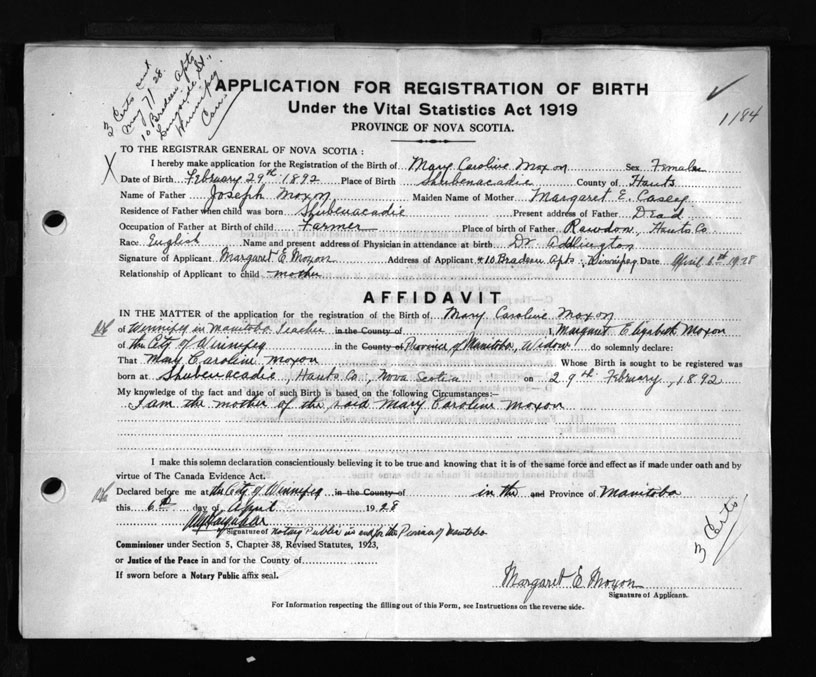 3 Certs
May 7/28.
10 Bradeen Apts
Winnipeg
Can.
APPLICATION FOR REGISTRATION OF BIRTH
Under the Vital Statistics Act 1919
PROVINCE OF NOVA SCOTIA.
1184
TO THE REGISTRAR GENERAL OF NOVA SCOTIA :
X
I hereby make application for the Registration of the Birth of Mary Caroline Moxon Sex Female
Date of Birth February 29th 1892 Place of Birth Shubenacadie County of Hants
Name of Father Joseph Moxon Maiden Name of Mother Margaret E. Casey
Residence of Father when child was born Shubenacadie Present address of Father Dead
Occupation of Father at Birth of child Farmer Place of birth of Father Rawdon, Hants Co.
Race English Name and present address of Physician in attendance at birth Dr. Addlington
Signature of Applicant Margaret E. Moxon Address of Applicant 10 Bradeen Apts., Winnipeg Date April 6th 1928
Relationship of Applicant to child mother
AFFIDAVIT
IN THE MATTER of the application for the registration of the Birth of Mary Caroline Moxon
of Winnipeg in Manitoba Teacher in the County of I, Margaret Elizabeth Moxon
of the City of Winnipeg in the County of Province of Manitoba, Widow do solemnly declare:
That Mary Caroline Moxon Whose Birth is sought to be registered was
born at Shubenacadie, Hants Co., Nova Scotia on 29th February, 1892
My knowledge of the fact and date of such Birth is based on the following Circumstances:—
I am the mother of the said Mary Caroline Moxon
I make this solemn declaration conscientiously believing it to be true and knowing that it is of the same force and effect as if made under oath and by
virtue of The Canada Evidence Act.
Declared before me at the City of Winnipeg in the County of in the and Province of Manitoba
this 6th day of April 1928
Signature of Notary Public in and for the Province of Manitoba
Commissioner under Section 5, Chapter 38, Revised Statutes, 1923,
or Justice of the Peace in and for the County of
If sworn before a Notary Public affix seal.
3 Certs
Margaret E. Moxon
Signature of Applicant.
For Information respecting the filling out of this Form, see Instructions on the reverse side.